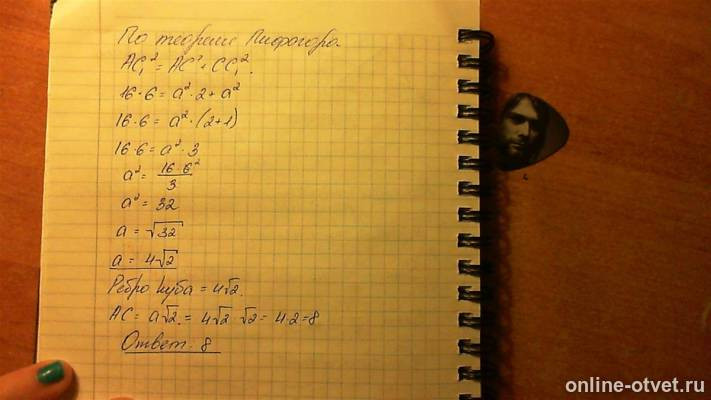 По теореме Пифагора.
AC₁² = AC² + CC₁².
16·6 = a²·2 + a²
16·6 = a²·(2+1)
16·6 = a²·3
a² = 16·6²/3
a² = 32
a = √32
a = 4√2
Ребро куба = 4√2.
AC = a√2 = 4√2·√2 = 4·2 = 8
Ответ: 8
online-otvet.ru